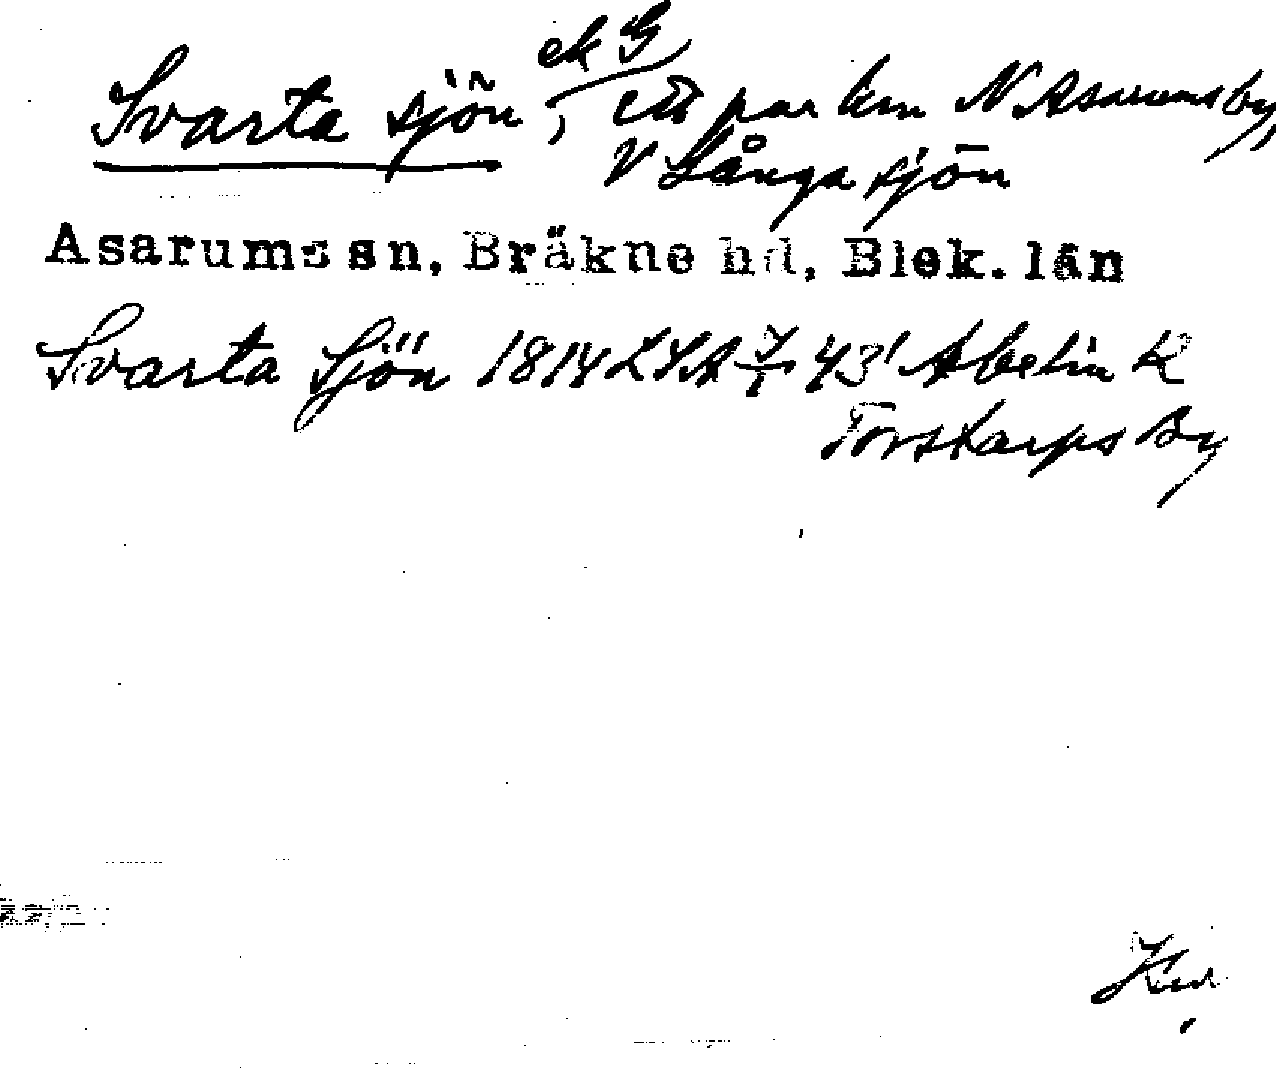 ek G
Svarta sjön, ett par km N Asarums by,
V Långasjön
Asarums sn, Bräkne hd, Blek. län
Svarta Sjön 1818 LSA 7/1 43' Abelin K
Torstarps By